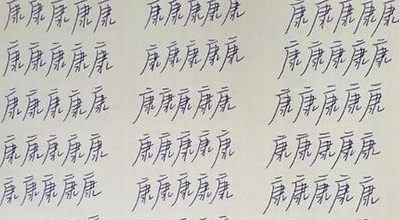 康康康康康 康康康康康 康康康康康
康康康康康 康康康康康 康康康康康
康康康康康 康康康康康 康康康康康
康康康康康 康康康康康 康康康康康
康康康康康 康康康康康 康康康康康